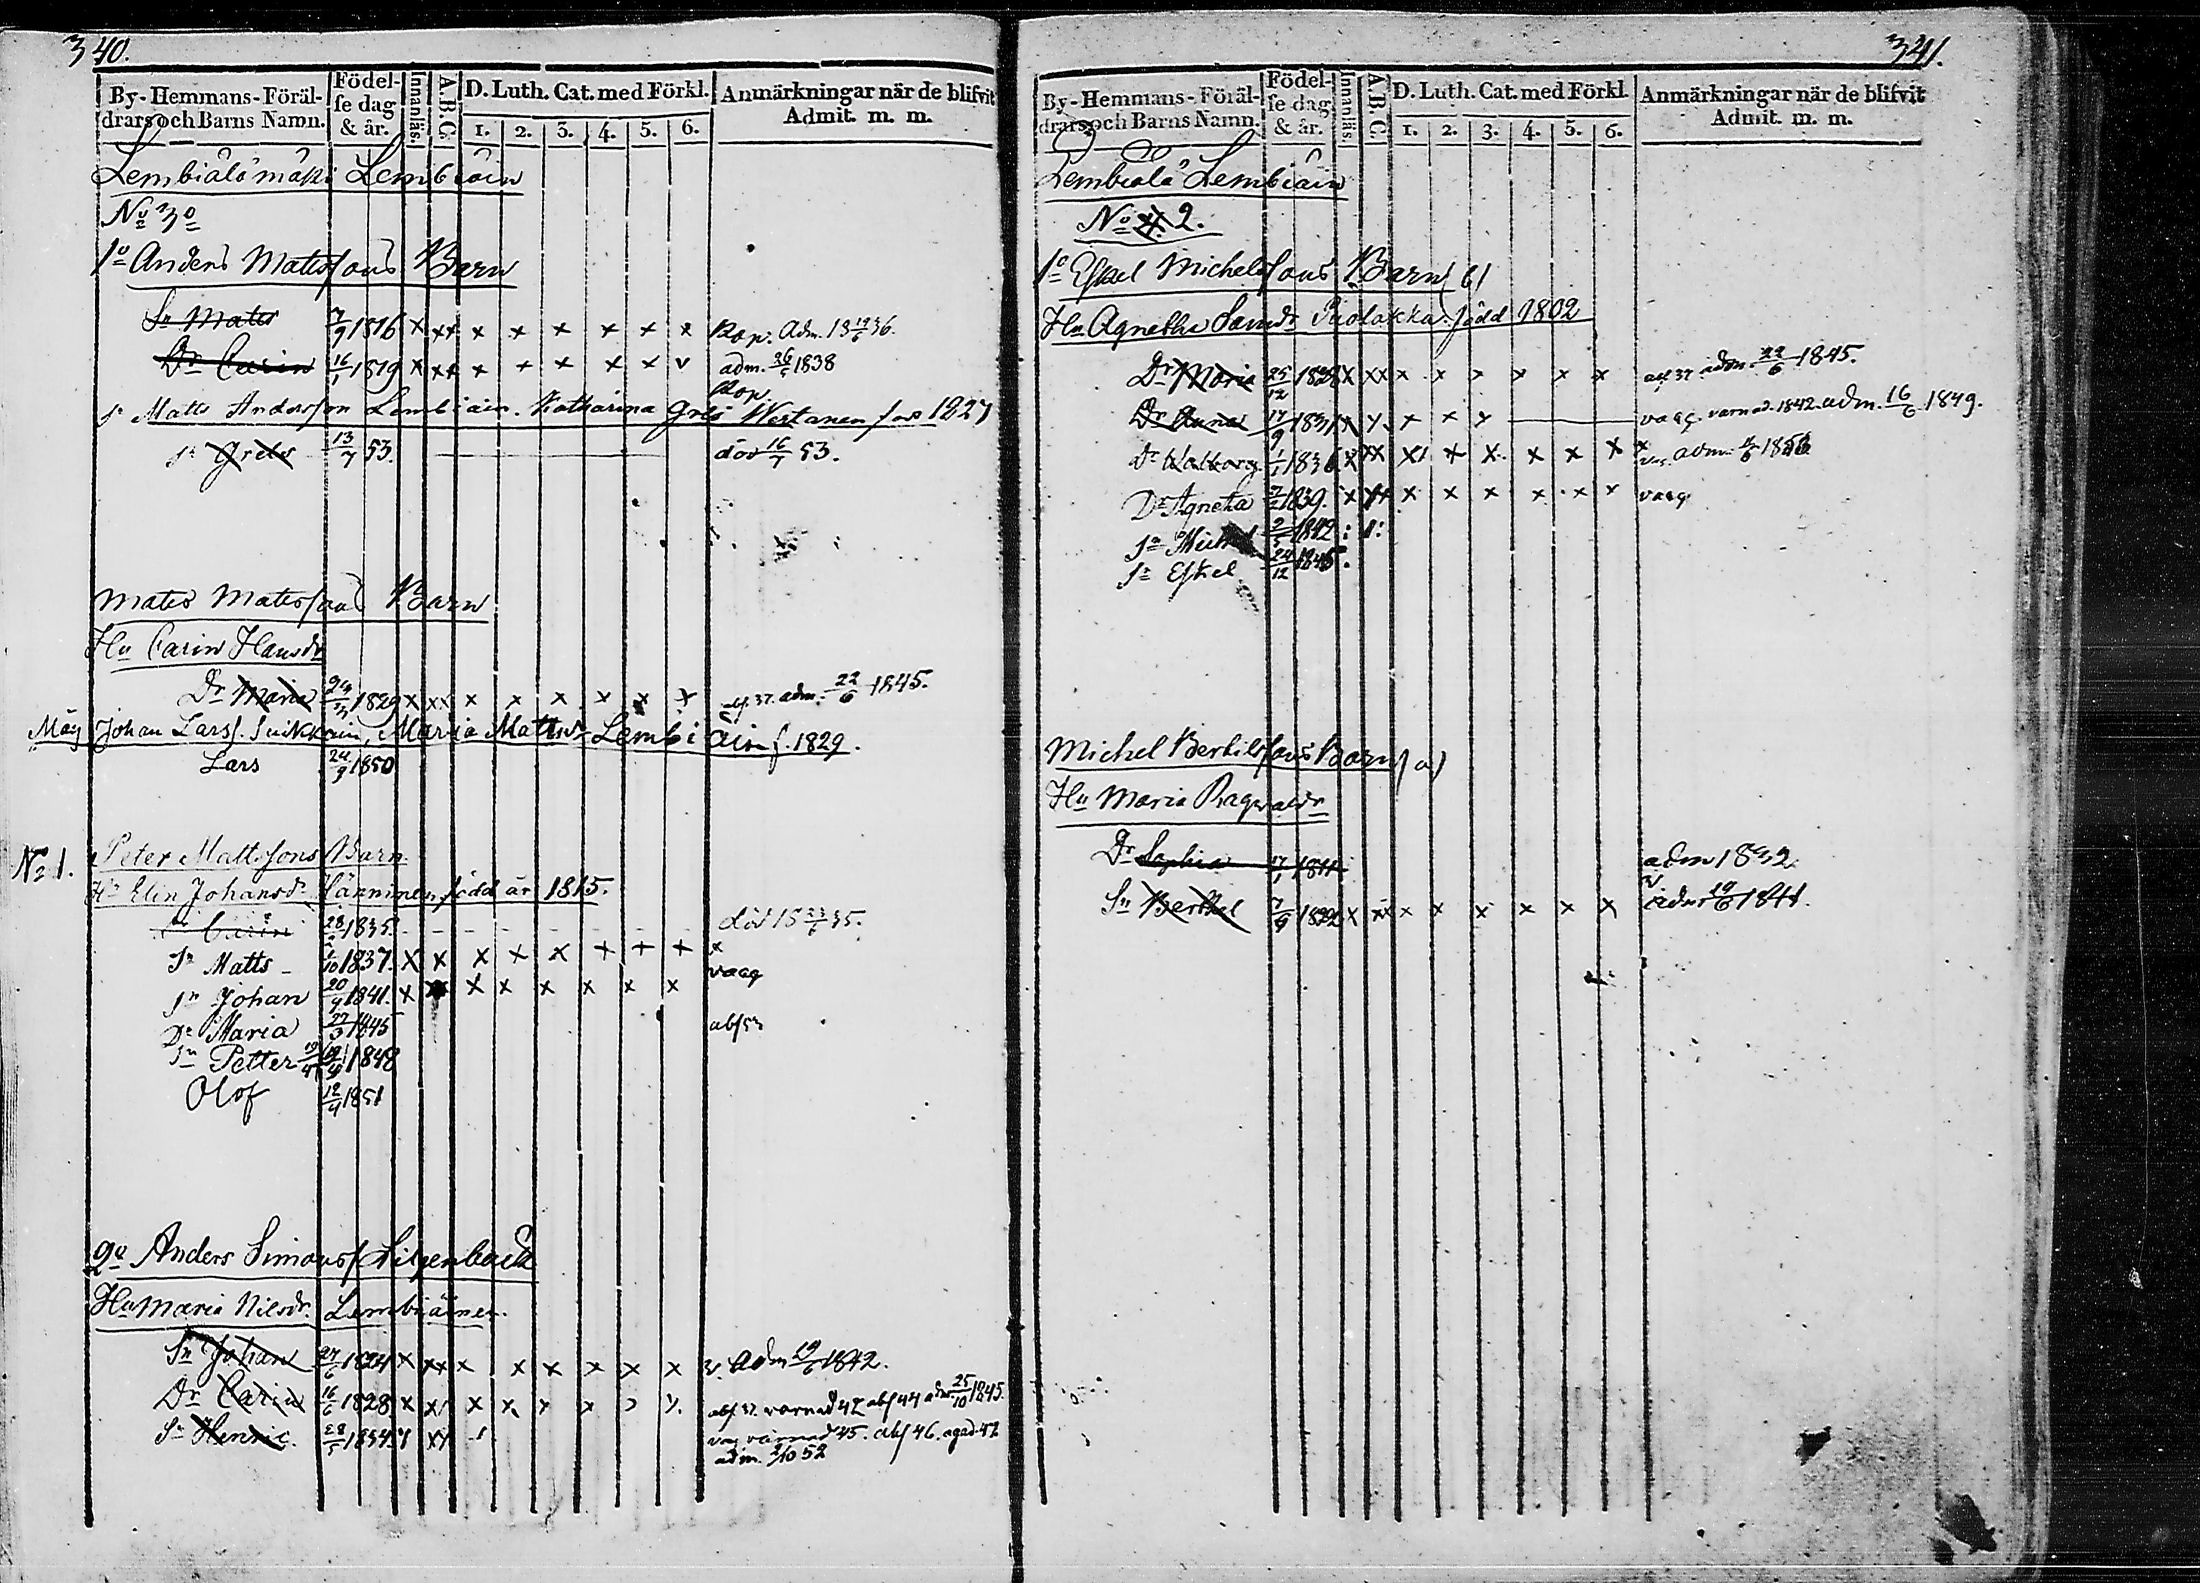 340.
By-Hemmans-Föräl-
drars och Barns Namn.
Födel-
se dag
& år.
Innanläs.
A.B.C.
D. Luth. Cat. med Förkl.
1. 2. 3. 4. 5. 6.
Anmärkningar när de blifvit
Admit. m. m.
Lembiälä mäki Lembiäin
No 3o
1o Anders Matssons Barn
Sn Mats 7/9 1816 x xx x x x x x x Kop. Adm. 13 19/6 36.
Dr Carin 16/1 1819 x xx x x x x x v adm. 1838
Kop.
Sn Matts Andersson Lembiäin. Katharina Westanen 1827
Greta 13/7 53. död 16/7 53.
Mats Matssons Barn
Hu Carin Hansdr
Dr Maria 1829 x xx x x x x x x abs. 37. adm. 22/6 1845.
Måg Johan Larss. Suikkain, Maria Mattsdr Lembiäin f. 1829.
Lars 24/9 1850
No 1. Peter Matssons Barn
Hu Elin Johansdr Hänninen född år 1815.
Carin 28/2 1835. död 15 35.
Sn Matts 1/10 1837. x x x x x x x x x
vacc
Sn Johan 20/4 1841. x x x x x x x
Dr Maria 27/3 1845 abs 53
Sn Petter 19/4 1848
Olof 12/4 1851
2o Anders Simonss Silfenback
Hu Maria Nilsdr. Lembiäinen.
Sn Johan 27/6 1824 x xx x x x x x x v. Adm 19/6 1842.
Dr Carin 16/6 1828 x xx x x x x abs. 37. varnad 42 abs 44 adm. 25/10 1845.
Sn Henric. 28/5 1834 vac varnad 45. abs 46. agad 47
adm. 2/10 52
341.
By-Hemmans-Föräl-
drars och Barns Namn.
Födel-
se dag
& år.
Innanläs.
A.B.C.
D. Luth. Cat. med Förkl
1. 2. 3. 4. 5. 6.
Anmärkningar när de blifvit
Admit. m. m.
Lembiälä Lembiäin
No 2.
1o Eskel Michelssons Barn b)
Hu Agnetha Samdr Puolakka född 1802
Dr Maria 25/12 1828 x xx x x x x x x abs 37. adm. 22/6 1845.
Dr Anna 17/9 1831 x x x x x vacc. varnad. 1842. adm. 16/6 1849.
Dr Walborg 1/1 1836 x xx x x x x x x x
vac. adm.
Dr Agneta 1839. x xx x x x x x x vacc
Sn Michel 1842
Sn Eskel 24/12 1845
Michel Bertilssons Barn a)
Hu Maria Ragvaldr
Dr Sophia 17/1 1811 adm 1832.
Sn Berthel 7/9 1822 x xx x x x x x x v adm 19/6 1841.